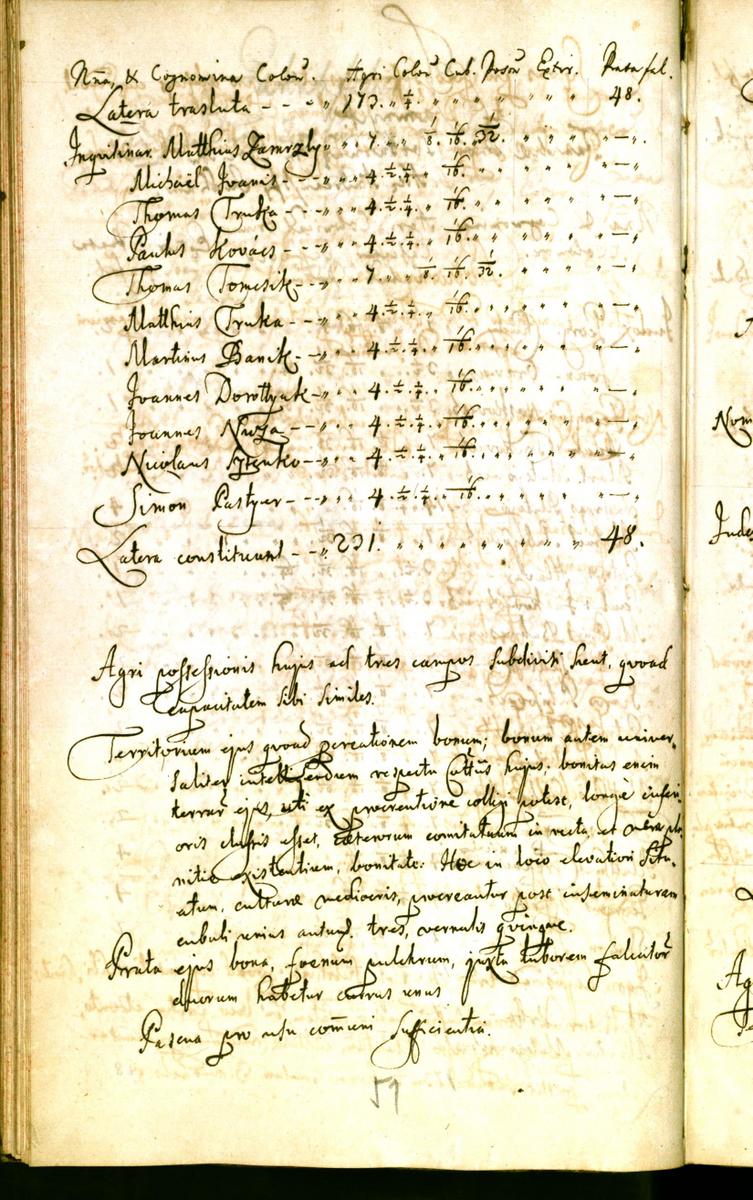 Nna, & Cognomina Colon. Agri Colon Cub. Poson Extir. Prata fal.
Latera traslata - - " " 173. " 1/4. " " " " " " 48.
Inquilinar. Matthius Zamrzly " " " 7. " " 1/8. 1/16. 1/32. " " " " — .
Michaël Ivanis - - " " 4. 1/2. 1/4. " 1/16. " " " " " —
Thomas Truka - - " " 4. 1/2. 1/4. " 1/16. " " " " " — "
Paulus Kovács - - " " 4. 1/2. 1/4. " 1/16. " " " " " — "
Thomas Tomcsik - - " " 7. " " 1/8. 1/16. 1/32. " " " " — "
Matthius Truka - - " " 4. 1/2. 1/4. " 1/16. " " " " " — "
Martinus Banik - " " 4. 1/2. 1/4. " 1/16. " " " " " — "
Joannes Dorottyak - " " 4. 1/2. 1/4. " 1/16. " " " " " — "
Joannes - - " " 4. 1/2. 1/4. " 1/16. " " " " " — "
Nicolaus - - " " 4. 1/2. 1/4. " 1/16. " " " " " — "
Simon Pastyer - - " " 4. 1/2. 1/4. " 1/16. " " " " " — "
Latera constituunt - - " 231. " " " " " " " " 48.
Agri possessionis hujus ad tres campos subdivisi sunt, quoad
capacitatem sibi similes.
Territorium ejus quoad procreationem bonum; bonum autem univer-
saliter intelligendum respectu Cottus hujus. bonitas enim
terrar ejus, uti ex procreatione colligi potest, longè inferi-
oris classis esset, caeterorum comitatuum in recta, et
nitie existentium, bonitate. Hoc in loco elevatiori situ-
atum, culturae mediocris, procreantur post inseminaturam
cubuli unius autum. tres, vernalis quinque.
Prata ejus bona, foenum pulchrum, juxta laborem falcator
duorum habetur currus unus
Pascua pro usu comuni sufficientia.
59
Nom
Inde
Ag
Te